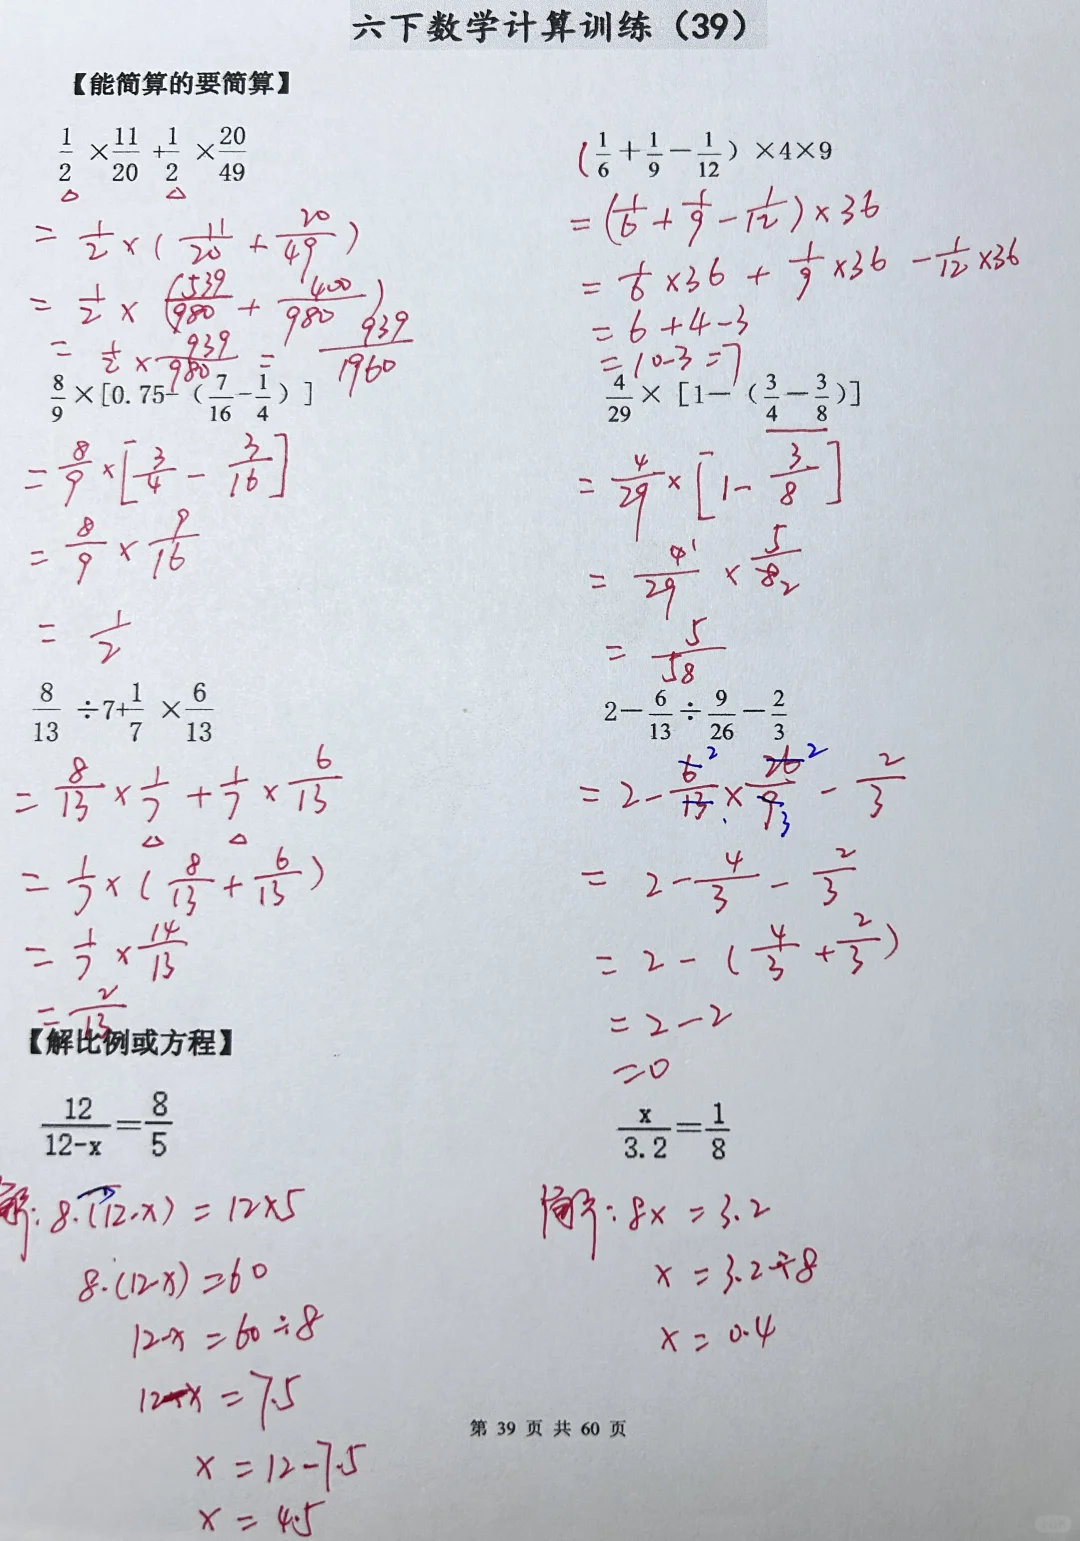 六下数学计算训练（39）
【能简算的要简算】
1/2 ×11/20 +1/2 ×20/49
= 1/2 × ( 11/20 + 20/49 )
= 1/2 × (539/980 + 400/980)
= 1/2 × 939/980 = 939/1960
(1/6+1/9−1/12）×4×9
= (1/6 + 1/9 − 1/12) × 36
= 1/6 × 36 + 1/9 × 36 − 1/12 × 36
= 6 + 4 − 3
= 10-3 = 7
8/9 ×[0.75-（7/16-1/4）]
= 8/9 × [3/4 − 3/16]
= 8/9 × 9/16
= 1/2
4/29 × [1—（3/4−3/8)]
= 4/29 × [1 − 3/8]
= 4/29 1 × 5/8 2
= 5/58
8/13 ÷7+1/7 ×6/13
= 8/13 × 1/7 + 1/7 × 6/13
= 1/7 × ( 8/13 + 6/13 )
= 1/7 × 14/13
= 2/13
2−6/13÷9/26−2/3
= 2 − 6/13 2 × 26/9 2 3 − 2/3
= 2 − 4/3 − 2/3
= 2 − ( 4/3 + 2/3 )
= 2 − 2
= 0
【解比例或方程】
12/12-x=8/5
解: 8·(12-x) = 12×5
8·(12-x) = 60
12-x = 60÷8
12-x = 7.5
x = 12-7.5
x = 4.5
x/3.2=1/8
解: 8x = 3.2
x = 3.2÷8
x = 0.4
第 39 页 共 60 页